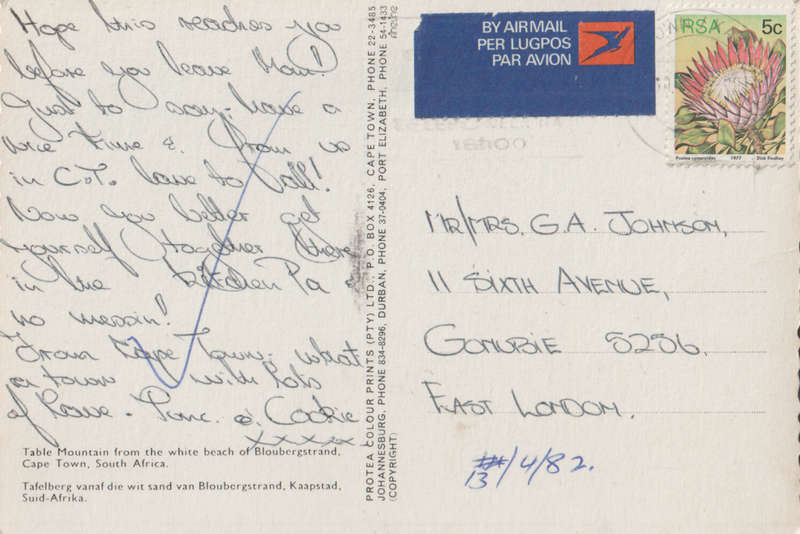 Hope this reaches you
before you leave Mom!
Just to say: have a
nice time &. from us
in C.T. love to all!
Now you better get
yourself together there
in the kitchen Pa &
no messin!
From Cape Town: what
a town with lots
of love - &. Cookie
xxxxx
Table Mountain from the white beach of Bloubergstrand,
Cape Town, South Africa.
Tafelberg vanaf die wit sand van Bloubergstrand, Kaapstad,
Suid-Afrika.
PROTEA COLOUR PRINTS (PTY) LTD., P.O. BOX 4126, CAPE TOWN, PHONE 22-3485
JOHANNESBURG, PHONE 834-8296, DURBAN, PHONE 37-0404, PORT ELIZABETH, PHONE 54-1433
(COPYRIGHT)
BY AIRMAIL
PER LUGPOS
PAR AVION
RSA 5c
Protea cynaroides 1977 Dick Findlay
MR/MRS. G.A. JOHNSON,
11 SIXTH AVENUE,
GONUBIE 5256.
EAST LONDON.
13/4/82.